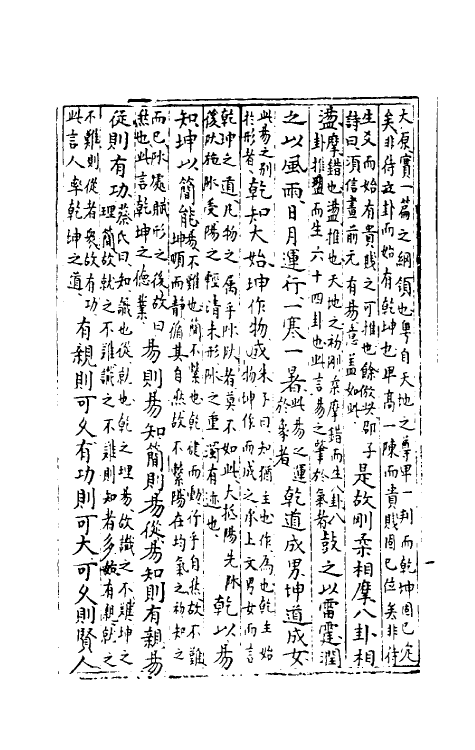 大原實一篇之綱領也粤自天地之尊卑一判而乾坤固已定
矣非待立卦而始有乾坤也卑高一陳而貴賤固已位矣非待
生爻而始有貴賤之可推也餘倣此邵子
詩曰須信畫前元有易意蓋如此
是故剛柔相摩八卦相
盪
摩錯也盪推也天地之初剛柔摩錯而生八卦八
卦推盪而生六十四卦也此言易之肇於氣者
鼓之以雷霆潤
之以風雨日月運行一寒一暑
此易之運
於象者
乾道成男坤道成女
此易之别
於形者
乾知大始坤作物成
朱子曰知猶主也作為也乾主始
物坤作而成之承上文男女而言
乾坤之道凡物之属乎陰陽者莫不如此大抵陽先陰
後陽施陰受陽之輕清未形陰之重濁有迹也
乾以易
知坤以簡能
易不難也簡不繁也乾健而動行乎自然故不難
坤順而静循其自然故不繁陽在均氣之初知之
而已陰處賦形之後故曰
能也此言乾坤之德業
易則易知簡則易從易知則有親易
從則有功
蔡氏曰知識也從就也乾之理易故識之不難坤之
理簡故就之不難識之不難則知者多故有親就之
不難則從者衆故有功
此言人率乾坤之道
有親則可久有功則可大可久則賢人